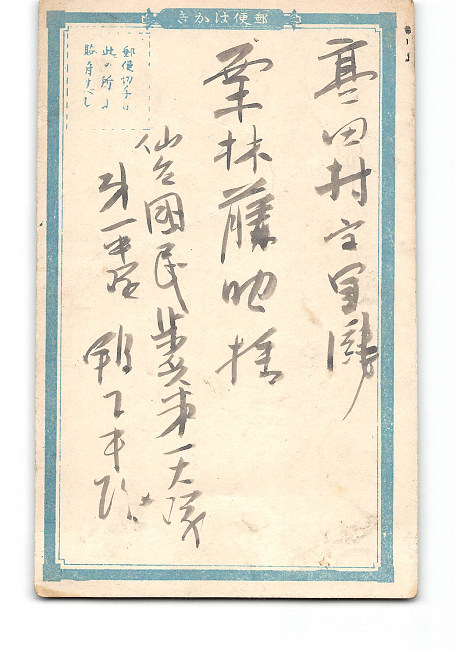 郵便はかき
郵便切手は
此の所に
貼付すべし
高田村字
栗林藤地様
仙台國民歩兵第一大隊
第一中隊